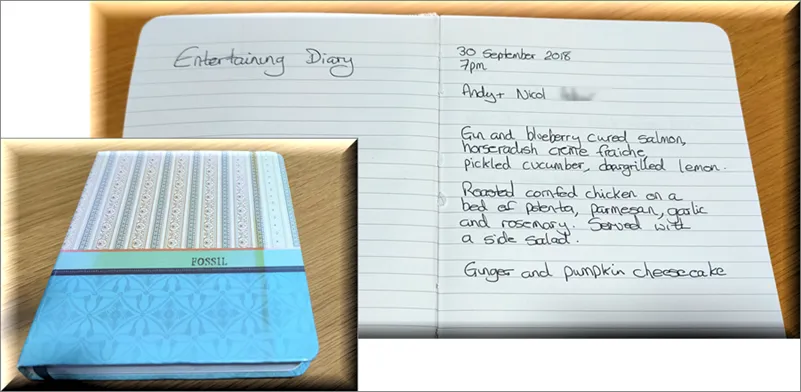 Entertaining Diary
30 September 2018
7pm
Andy + Nicol
Gin and blueberry cured salmon,
horseradish creme fraiche
pickled cucumber, chargrilled lemon.
Roasted cornfed chicken on a
bed of polenta, parmesan, garlic
and rosemary. Served with
a side salad.
Ginger and pumpkin cheesecake
FOSSIL